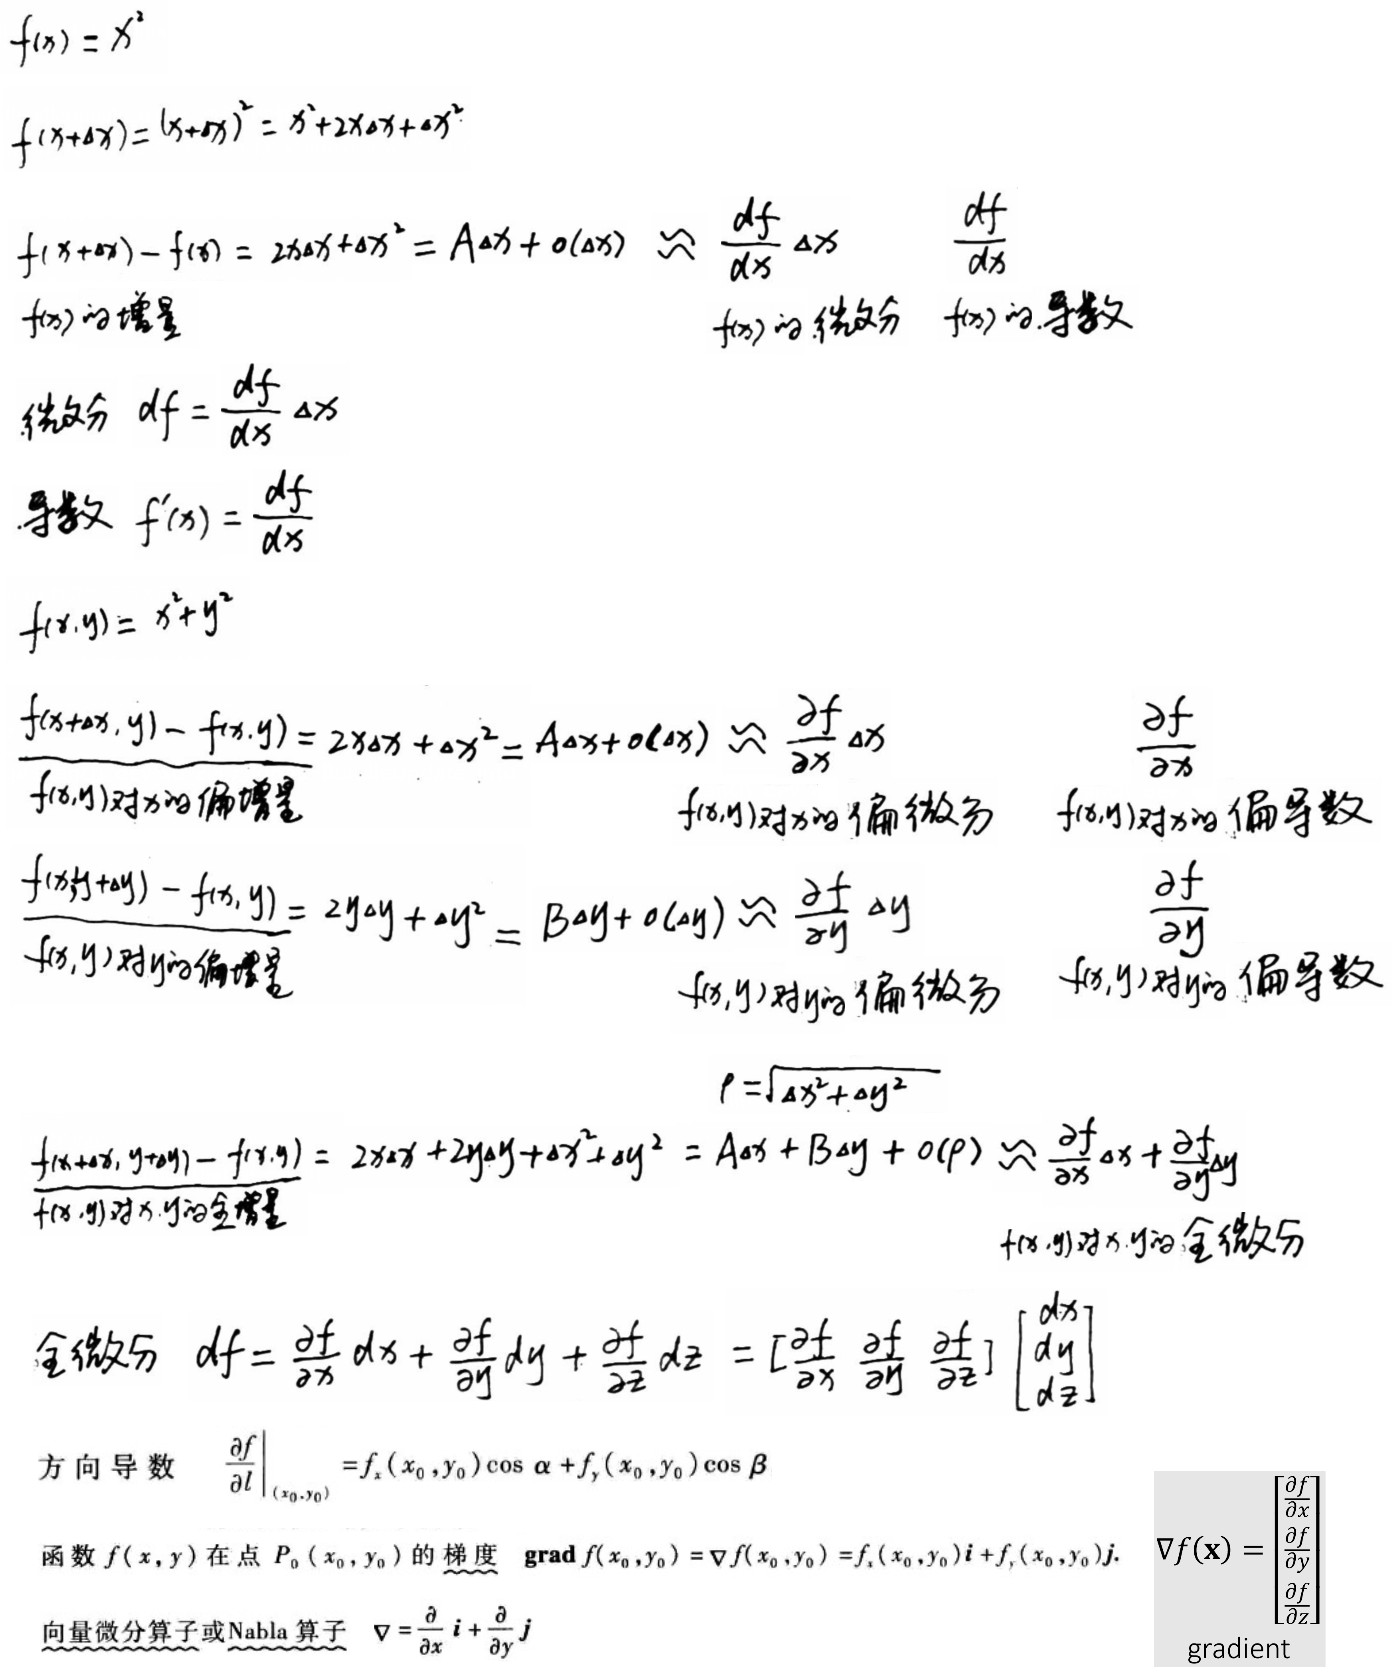 f(x) = x²
f(x+Δx) = (x+Δx)² = x²+2xΔx+Δx²
f(x+Δx) − f(x) = 2xΔx+Δx² = AΔx + o(Δx) ≈ df/dx Δx df/dx
f(x) 的增量 f(x) 的微分 f(x) 的导数
微分 df = df/dx Δx
导数 f′(x) = df/dx
f(x,y) = x²+y²
f(x+Δx, y) − f(x,y) = 2xΔx + Δx² = AΔx + o(Δx) ≈ ∂f/∂x Δx ∂f/∂x
f(x,y)对x的偏增量 f(x,y)对x的偏微分 f(x,y)对x的偏导数
f(x,y+Δy) − f(x,y) = 2yΔy + Δy² = BΔy + o(Δy) ≈ ∂f/∂y Δy ∂f/∂y
f(x,y)对y的偏增量 f(x,y)对y的偏微分 f(x,y)对y的偏导数
ρ = √(Δx²+Δy²)
f(x+Δx, y+Δy) − f(x,y) = 2xΔx + 2yΔy + Δx² + Δy² = AΔx + BΔy + o(ρ) ≈ ∂f/∂x Δx + ∂f/∂y Δy
f(x,y)对x.y的全增量 f(x,y)对x.y的全微分
全微分 df = ∂f/∂x dx + ∂f/∂y dy + ∂f/∂z dz = [∂f/∂x ∂f/∂y ∂f/∂z] [dx dy dz]
方向导数 ∂f/∂l|(x₀,y₀) = fₓ(x₀,y₀)cos α + f_y(x₀,y₀)cos β
函数 f(x,y) 在点 P₀(x₀,y₀) 的梯度 grad f(x₀,y₀) = ∇f(x₀,y₀) = fₓ(x₀,y₀)i + f_y(x₀,y₀)j.
∇f(x) = [∂f/∂x ∂f/∂y ∂f/∂z]
gradient
向量微分算子或Nabla 算子 ∇ = ∂/∂x i + ∂/∂y j